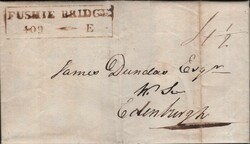 FUSHIE BRIDGE
403 E
1/2
James Dundas Esqr
W.S.
Edinburgh